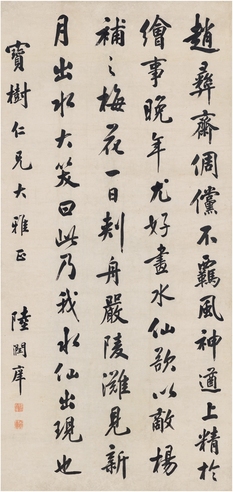 趙彝齋倜儻不羈風神遒上精於
繪事晚年尤好畫水仙欲以敵楊
補之梅花一日刺舟嚴陵灘見新
月出水大笑曰此乃我水仙出現也
寶樹仁兄大雅正
陸潤庠